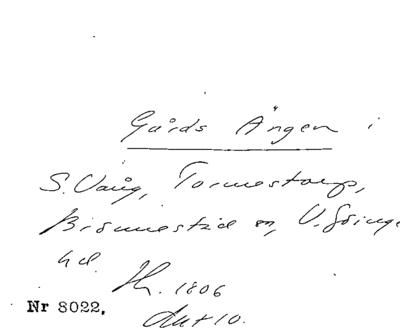 Gårds Ängen i
S. Vång, Tormestorp,
Brönnestad m, V. Göinge
hd. Jk. 1806
Nr 8022. Akt 10.